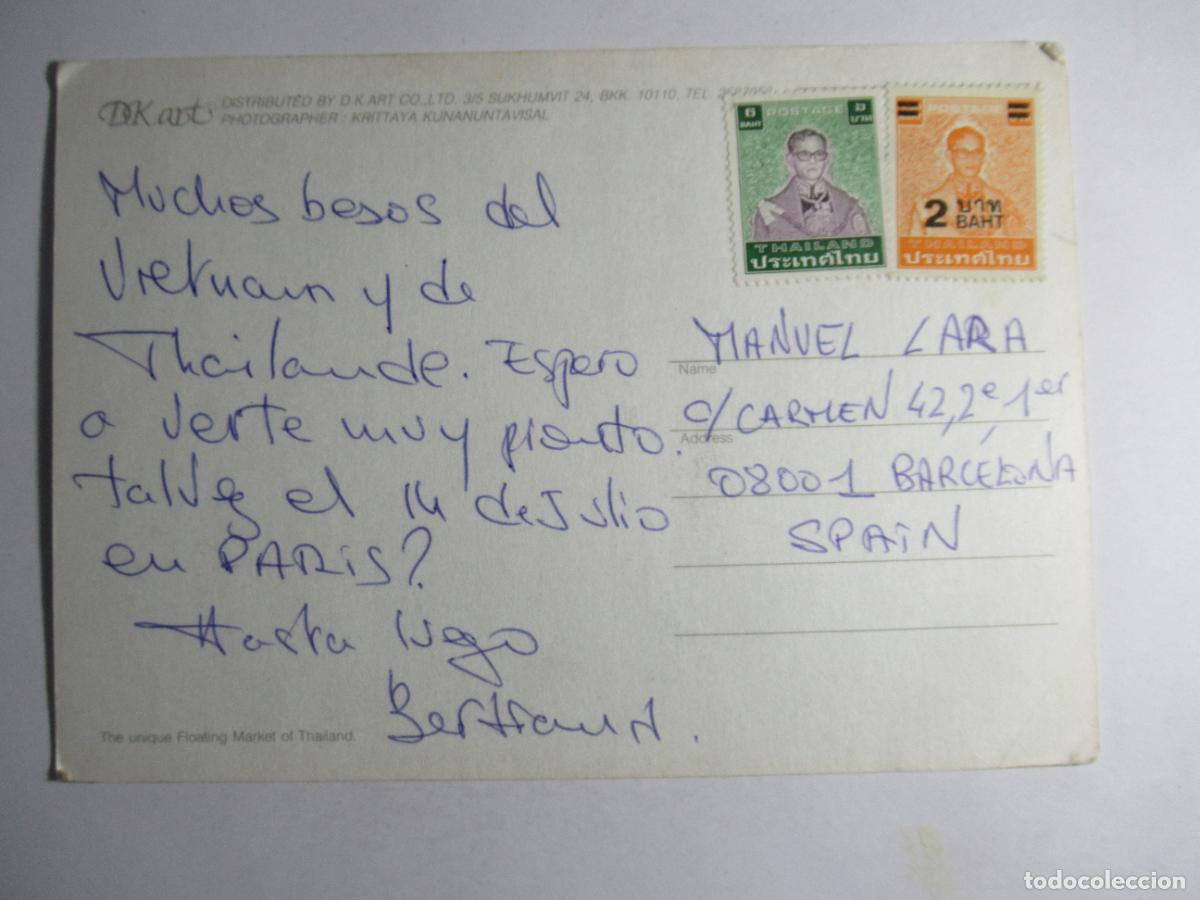 DK.art DISTRIBUTED BY D.K.ART CO.,LTD. 3/5 SUKHUMVIT 24, BKK. 10110, TEL.
PHOTOGRAPHER : KRITTAYA KUNANUNTAVISAL
6 POSTAGE ๖
BAHT บาท
THAILAND
ประเทศไทย
POSTAGE
2 บาท
BAHT
THAILAND
ประเทศไทย
Muchos besos del
Vietnam y de
Thailande. Espero
a verte muy pronto.
talvez el 14 de Julio
en PARIS?
Hasta luego
Bertrand.
MANUEL LARA
Name
C/ CARMEN 42, 2e, 1er
Address
08001 BARCELONA
SPAIN
The unique Floating Market of Thailand.
todocoleccion